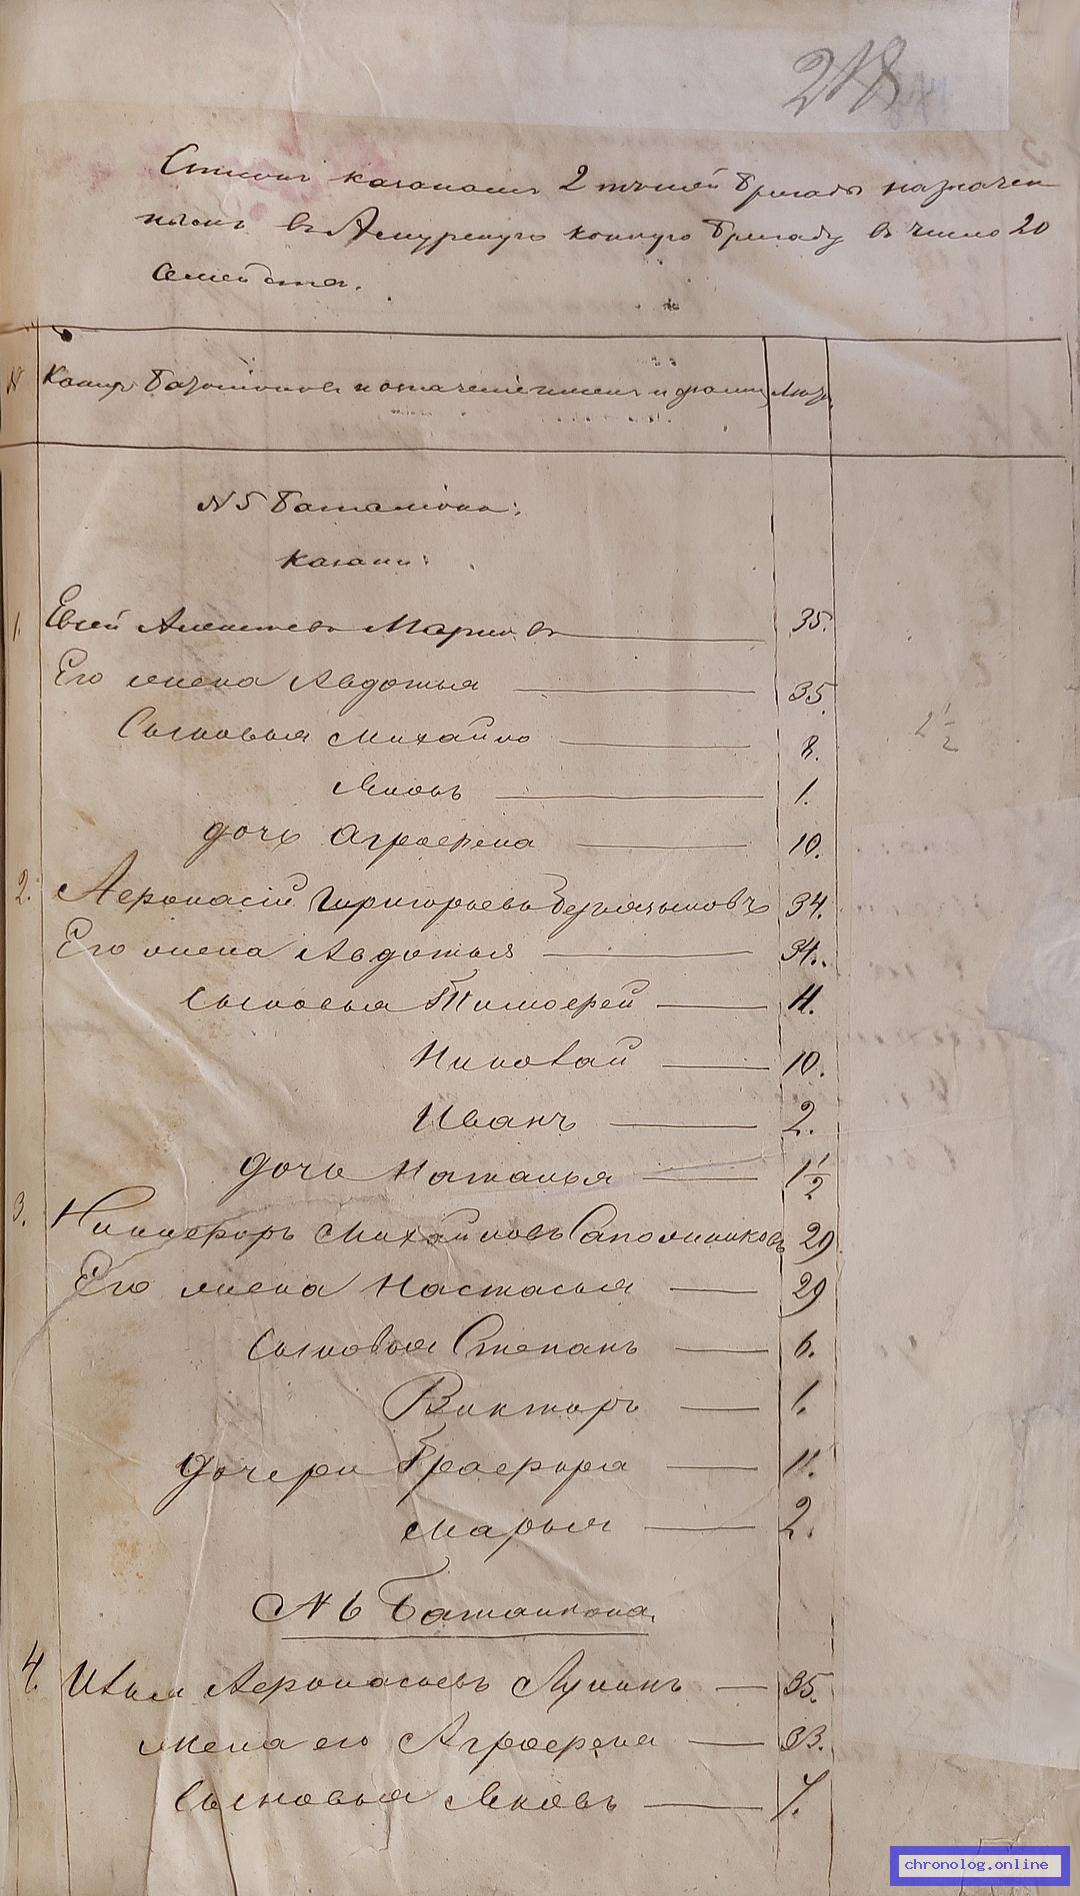 218
Списокъ казакамъ 2 пѣшей бригады назначен
нымъ въ Амурскую конную бригаду въ число 20
семейства.
N Коихъ баталіоновъ и отъ имени и Люд.
N 5 Баталіона:
Казаки:
1. Евсей Алексѣевъ Марковъ 35.
Его жена Авдотья 35.
Сыновья Михайло 8.
Яковъ 1.
дочь Аграфена 10.
2 1/2
2. Афонасій Григорьевъ Безъязыковъ 34.
Его жена Авдотья 34.
Сыновья Тимофей 11.
Николай 10.
Иванъ 2.
дочь Наталья 1 1/2
3. Никифоръ Михайловъ Сапожниковъ 29
Его жена Настасья 29
Сыновья Степанъ 6.
Викторъ 1.
дочери Графира 11.
Марья 2.
N 6 Баталіона.
4. Илья Афонасьевъ Лунинъ 35.
жена его Аграфена 33.
Сыновья Яковъ 7.
chronolog.online